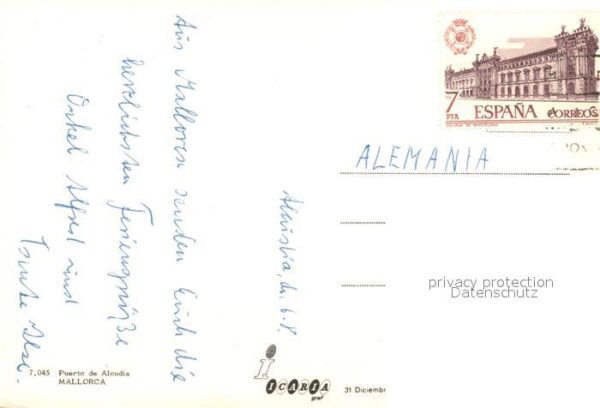 Aus Mallorca senden Euch die
herzlichsten Feriengrüße
Onkel Alfred und
Tante Ilse.
den 6.8.
7
PTA
ESPAÑA
CORREOS
ADUANA DE BARCELONA
ALEMANIA
privacy protection
Datenschutz
7.045 Puerto de Alcudia
MALLORCA
i
ICARIA
graf
31 Diciembr